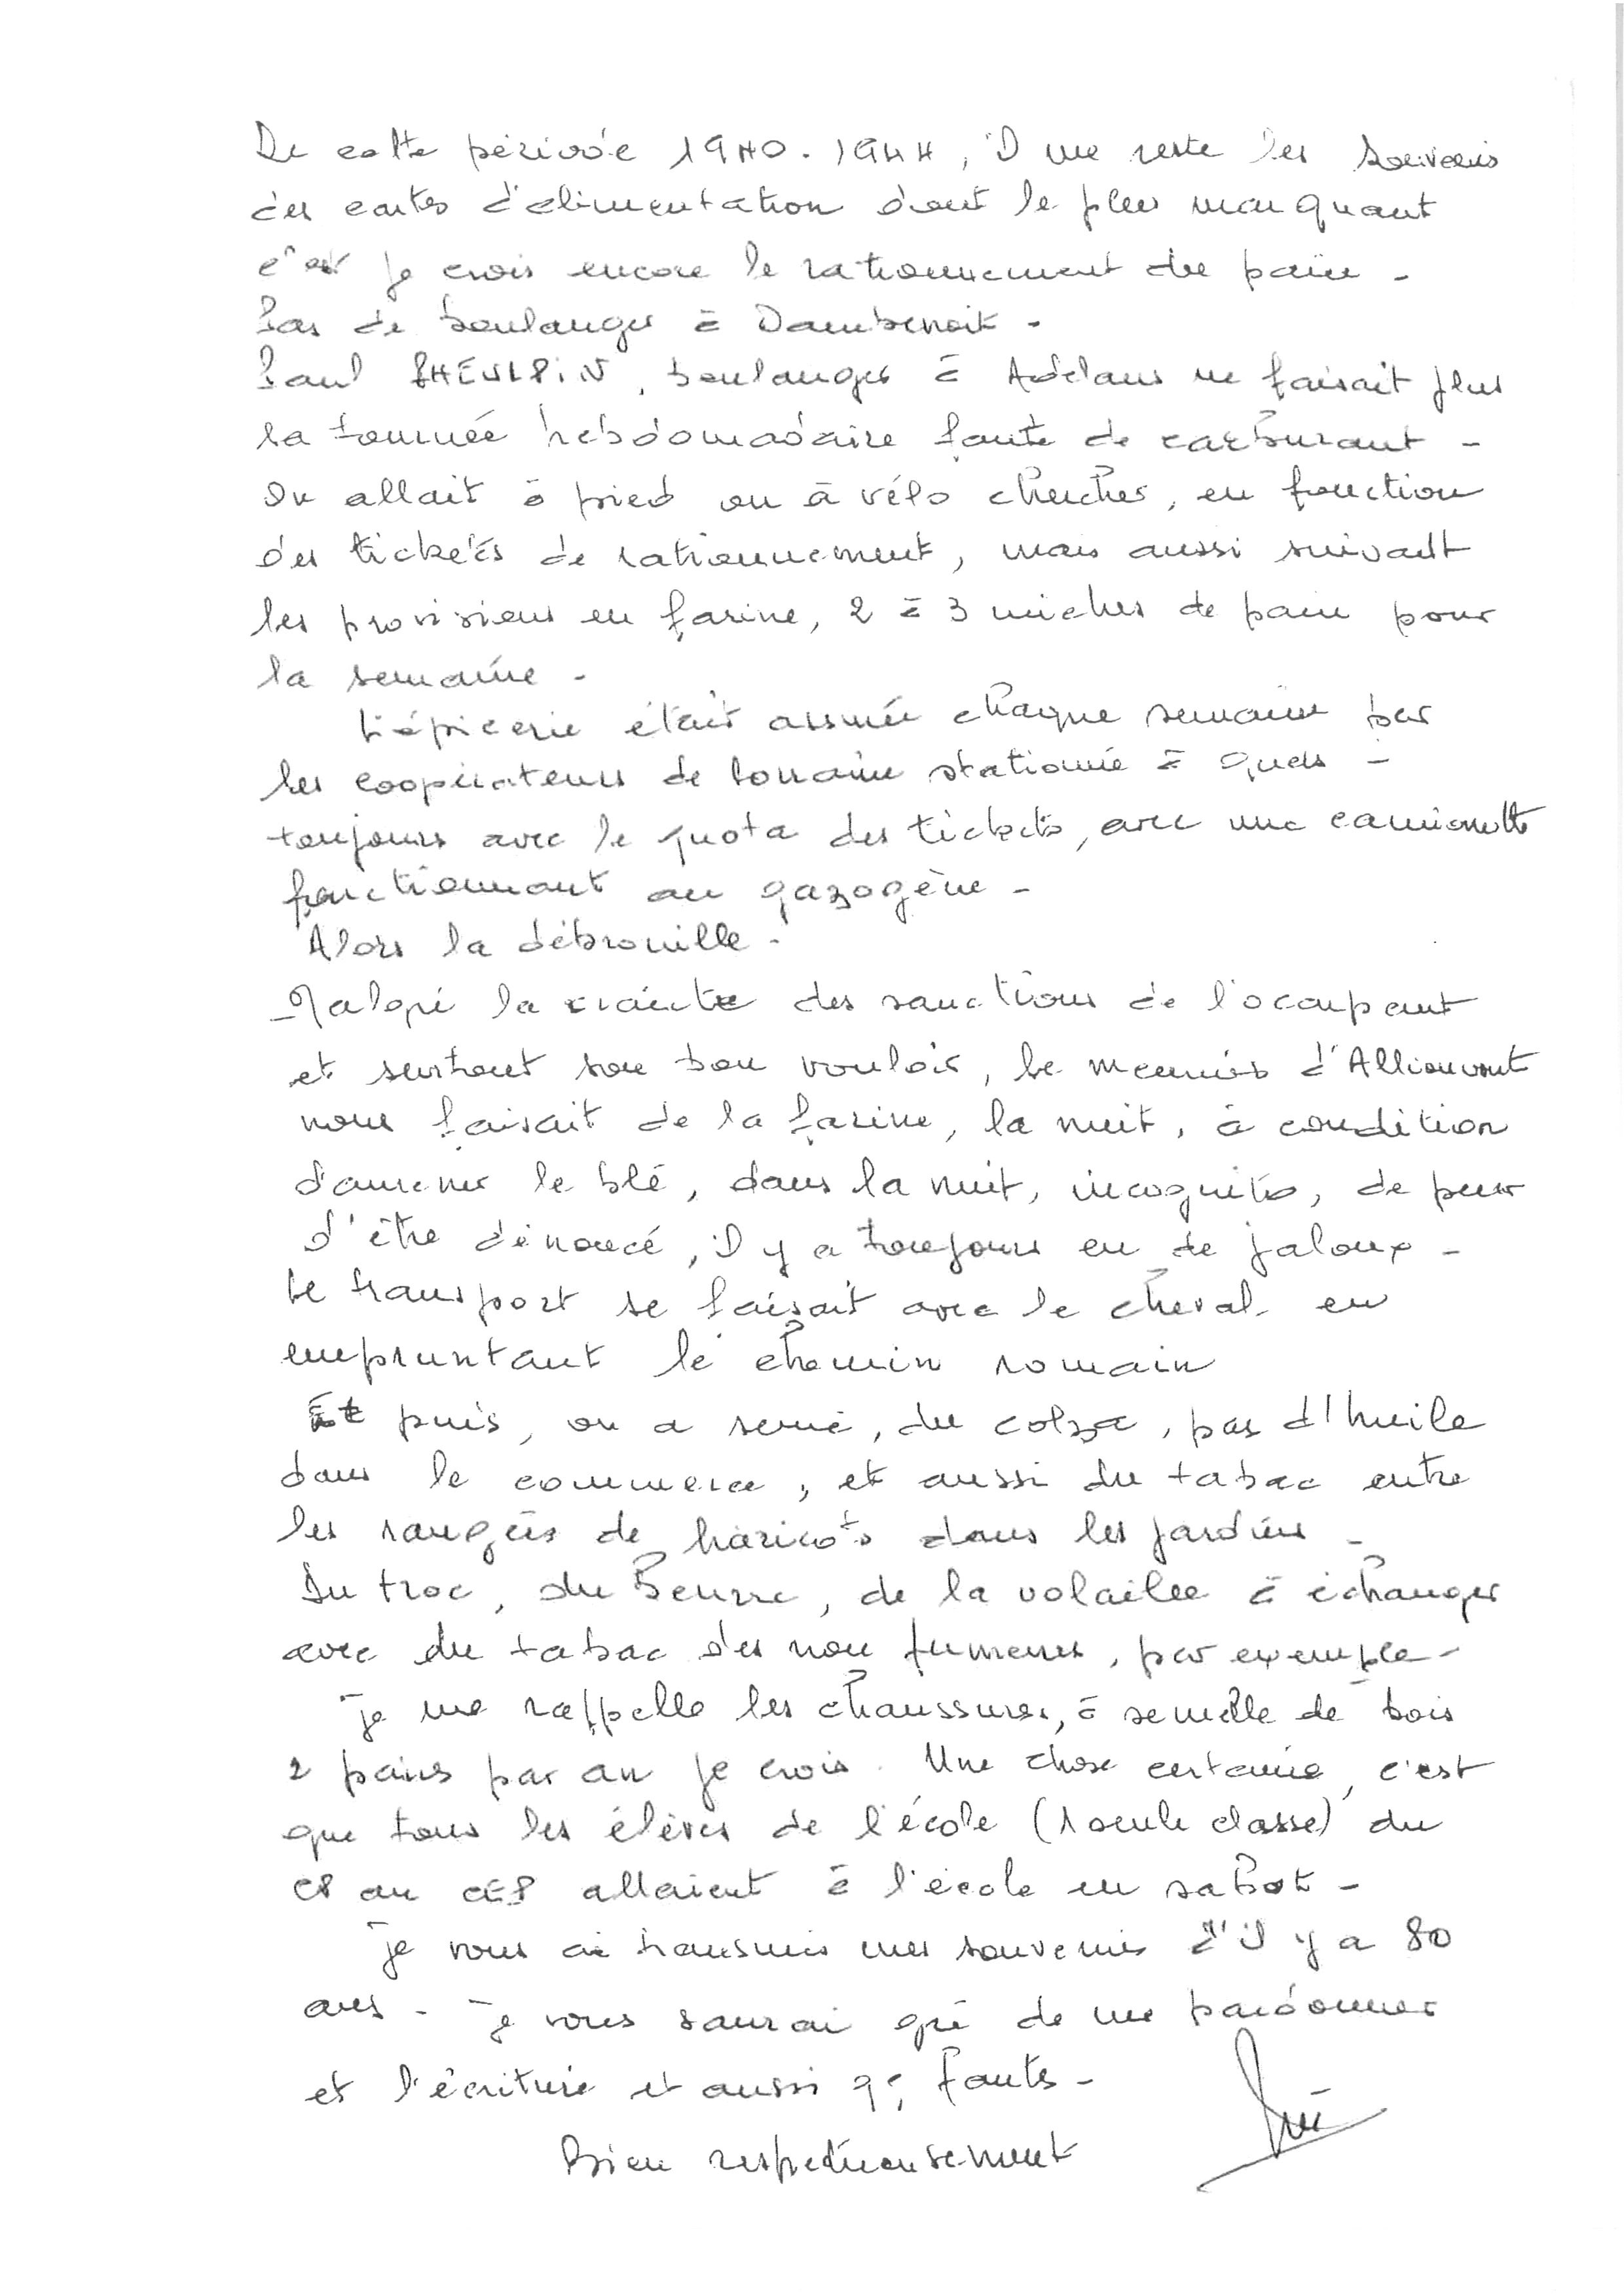 De cette période 1940.1944, il me reste les souvenirs
des cartes d'alimentation dont le plus marquant
c'est je crois encore le rationnement du pain -
Pas de boulanger à Dambenoit -
Paul boulanger à Adelans ne faisait plus
sa tournée hebdomadaire faute de carburant -
On allait à pied ou à vélo chercher, en fonction
des tickets de rationnement, mais aussi suivant
les provisions en farine, 2 à 3 miches de pain pour
la semaine -
L'épicerie était assurée chaque semaine par
les coopérateurs de Lorraine stationnée à Quers -
toujours avec le quota des tickets, avec une camionnette
fonctionnant au gazogène -
Alors la débrouille -
Malgré la crainte des sanctions de l'occupant
et surtout son bon vouloir, le meunier d'Allionvent
nous faisait de la farine, la nuit, à condition
d'amener le blé, dans la nuit, incognito, de peur
d'être dénoncé, il y a toujours eu de jaloux -
Le transport se faisait avec le cheval en
empruntant le chemin romain
Et puis, on a semé, du colza, pas d'huile
dans le commerce, et aussi du tabac entre
les rangées de haricots dans les jardins -
Du troc, du beurre, de la volaille à échanger
avec du tabac des non fumeurs, par exemple -
Je me rappelle les chaussures, à semelle de bois
2 paires par an je crois. Une chose certaine, c'est
que tous les élèves de l'école (1 seule classe) du
CP au CEP allaient à l'école en sabot -
Je vous ai transmis mes souvenirs d'il y a 80
ans - Je vous saurai gré de me pardonner
et l'écriture et aussi qq fautes -
Bien respectueusement